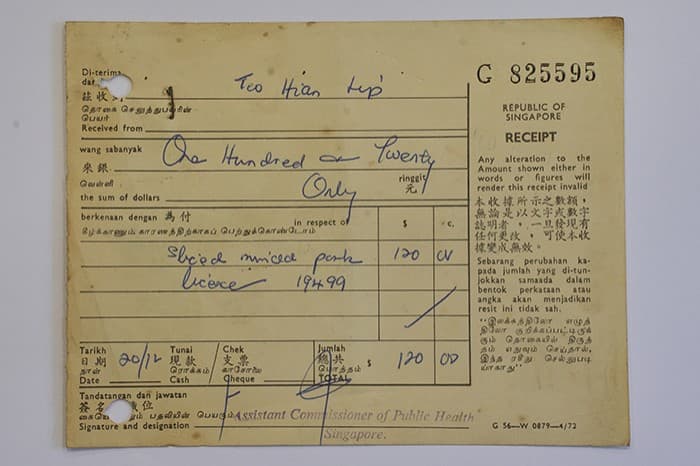 Di-terima
Teo Hian Lip
茲收
தொகை செலுத்துபவரின்
பெயர்
Received from
wang sabanyak
One Hundred & Twenty
來銀
ringgit
வெள்ளி
Only
元
the sum of dollars
berkenaan dengan 為付
in respect of
$
c.
கீழ்க்காணும் காரணத்திற்காகப் பெற்றுக்கொண்டோம்
Sliced minced pork
120
licence 19499
Tarikh
Tunai
Chek
Jumlah
日期
20/12
現款
支票
總共
$
120
00
நாள்
ரொக்கம்
காசோலை
மொத்தம்
Date
Cash
Cheque
TOTAL
Tandatangan dan jawatan
Assistant Commissioner of Public Health
Signature and designation
Singapore.
G 825595
REPUBLIC OF
SINGAPORE
RECEIPT
Any alteration to the
Amount shown either in
words or figures will
render this receipt invalid
本收據所示之數額，
無論是以文字或數字
誌明者，一旦發現有
任何更改，可使本收
據變成無效。
Sebarang perubahan ka-
pada jumlah yang di-tun-
jokkan samaada dalam
bentok perkataan atau
angka akan menjadikan
resit ini tidak sah.
"இலக்கத்திலோ எழுத்
திலோ குறிக்கப்பட்டிருக்
கும் தொகையில் திருத்
தம் எதுவும் செய்தால்,
இந்த ரசீது செல்லுபடி
யாகாது"
G 56—W 0879—4/72